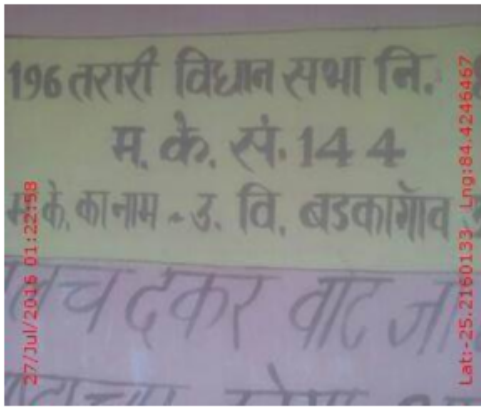 196 तरारी विधान सभा नि.
म. के. सं. 144
म. के. का नाम - उ. वि. बडकागाँव
देकर वोट
27/Jul/2015 01:22:58
Lat:-25.2160133 Lng:84.4246467